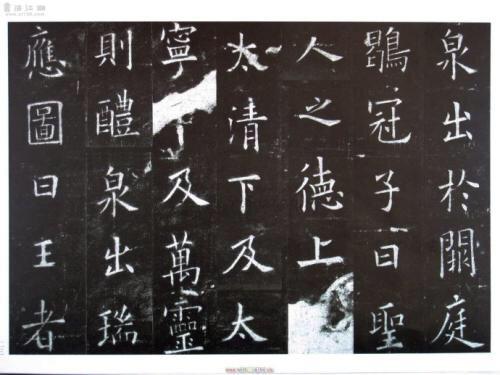 泉出於闕庭
鶡冠子曰聖
人之德上
太清下及太
寧及萬靈
則醴泉出瑞
應圖曰王者